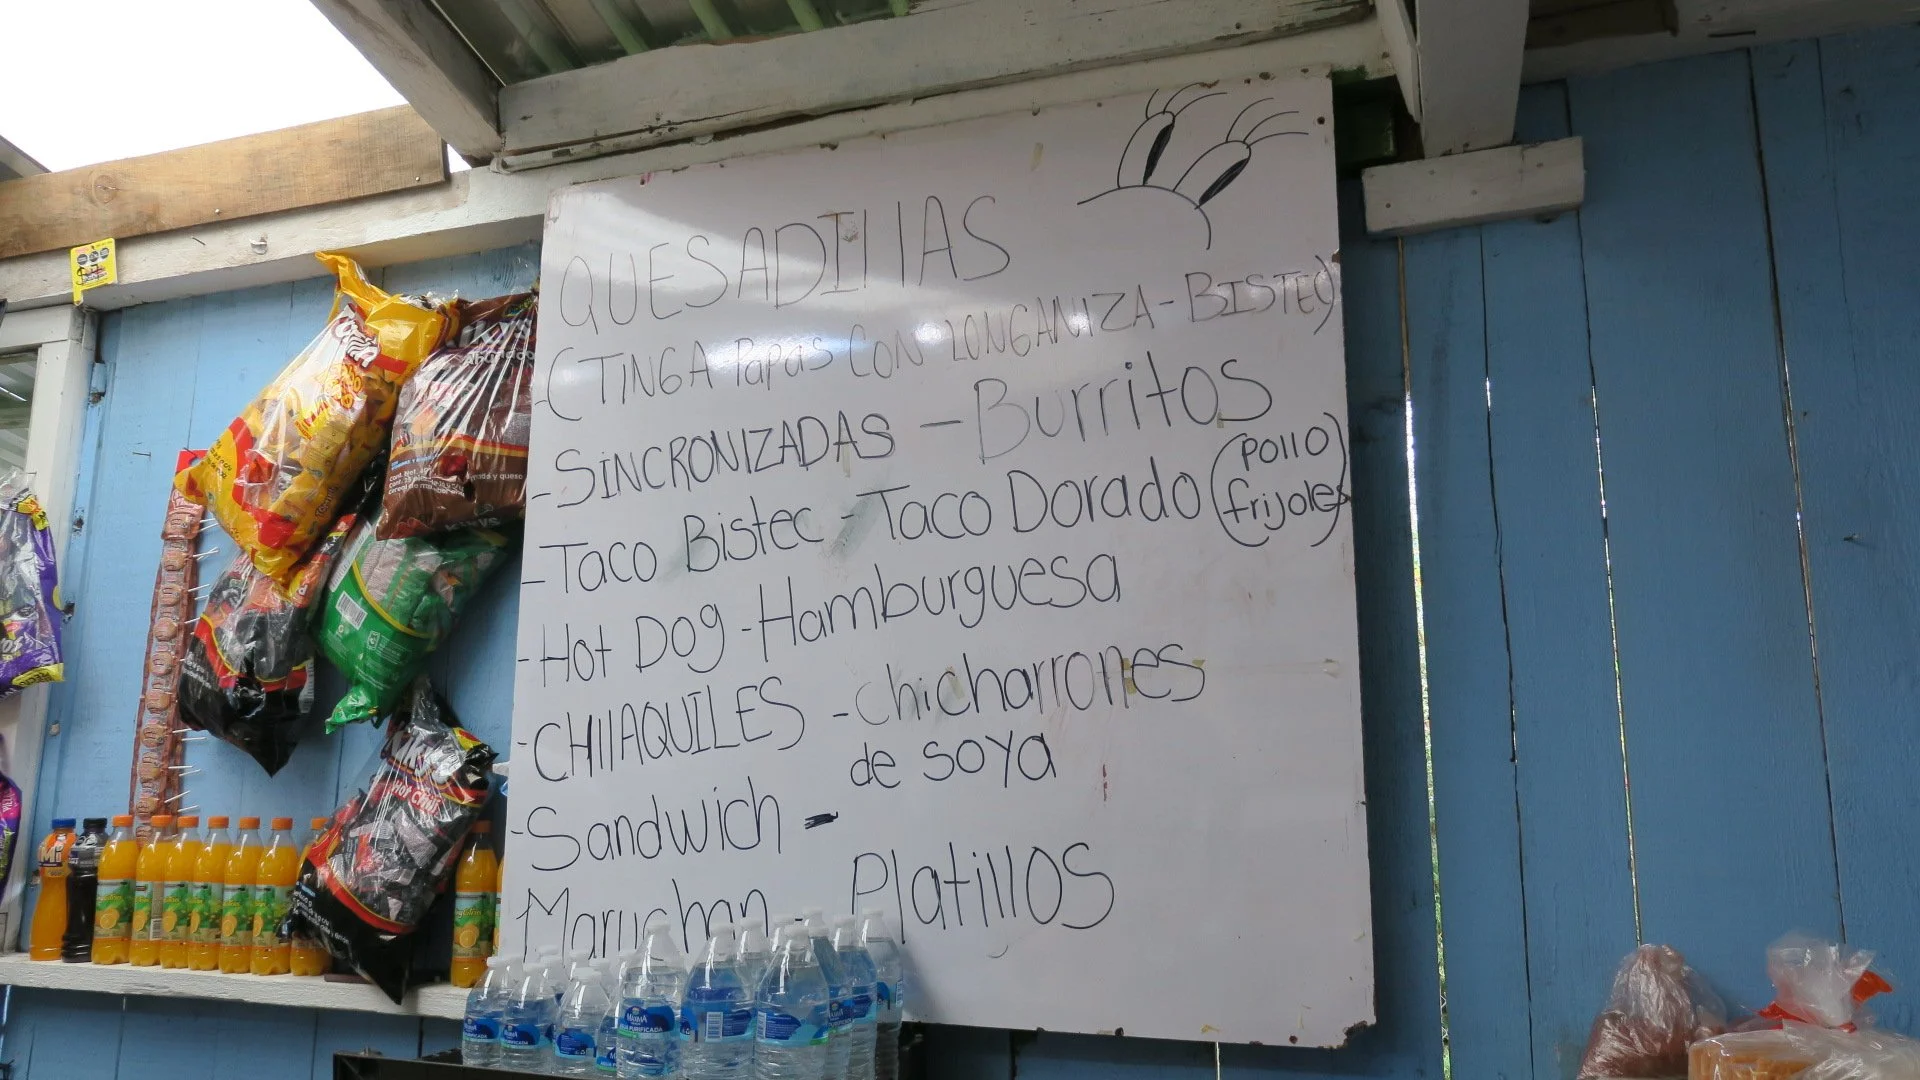 QUESADILLAS
(TINGA Papas CON LONGANIZA - BISTEC)
- SINCRONIZADAS - Burritos
- Taco Bistec - Taco Dorado (Pollo frijoles)
- Hot Dog - Hamburguesa
- CHILAQUILES - Chicharrones
de soya
- Sandwich -
Maruchan - Platillos
Hot Chili